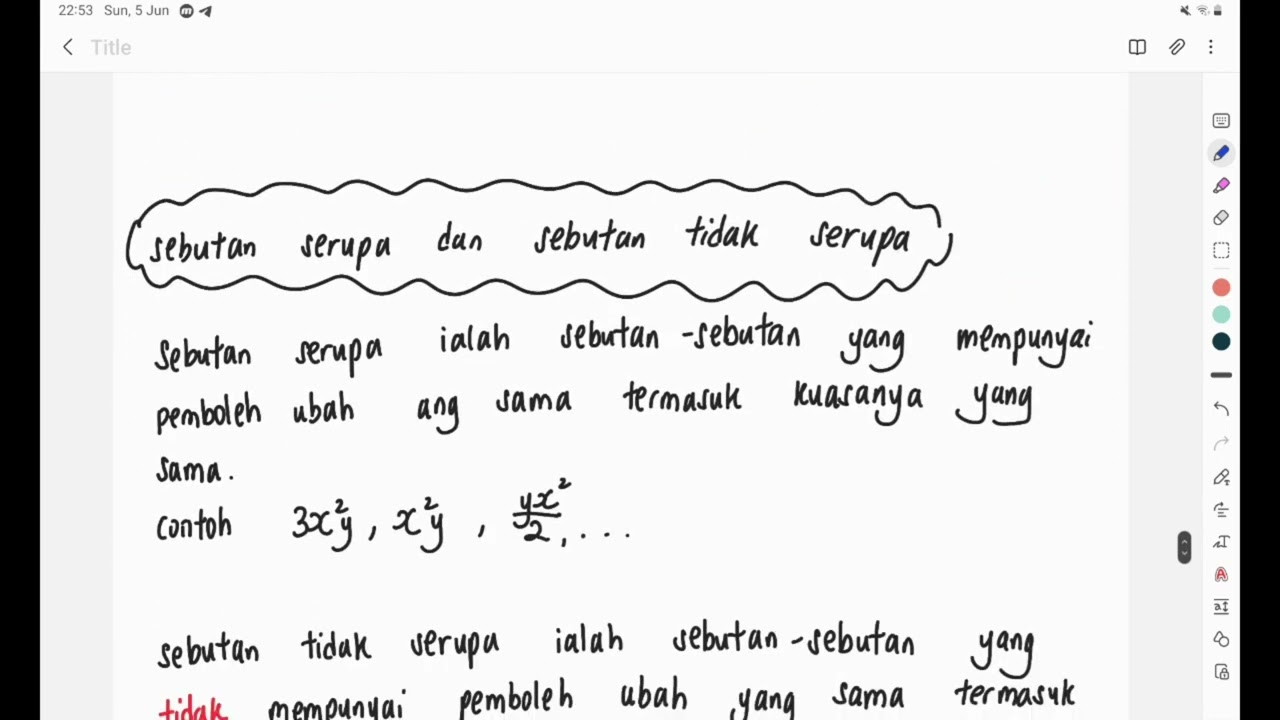 22:53 Sun, 5 Jun
Title
sebutan serupa dan sebutan tidak serupa
Sebutan serupa ialah sebutan-sebutan yang mempunyai
pemboleh ubah ang sama termasuk kuasanya yang
sama.
Contoh 3x²y, x²y, yx²/2, ...
sebutan tidak serupa ialah sebutan-sebutan yang
tidak mempunyai pemboleh ubah yang sama termasuk